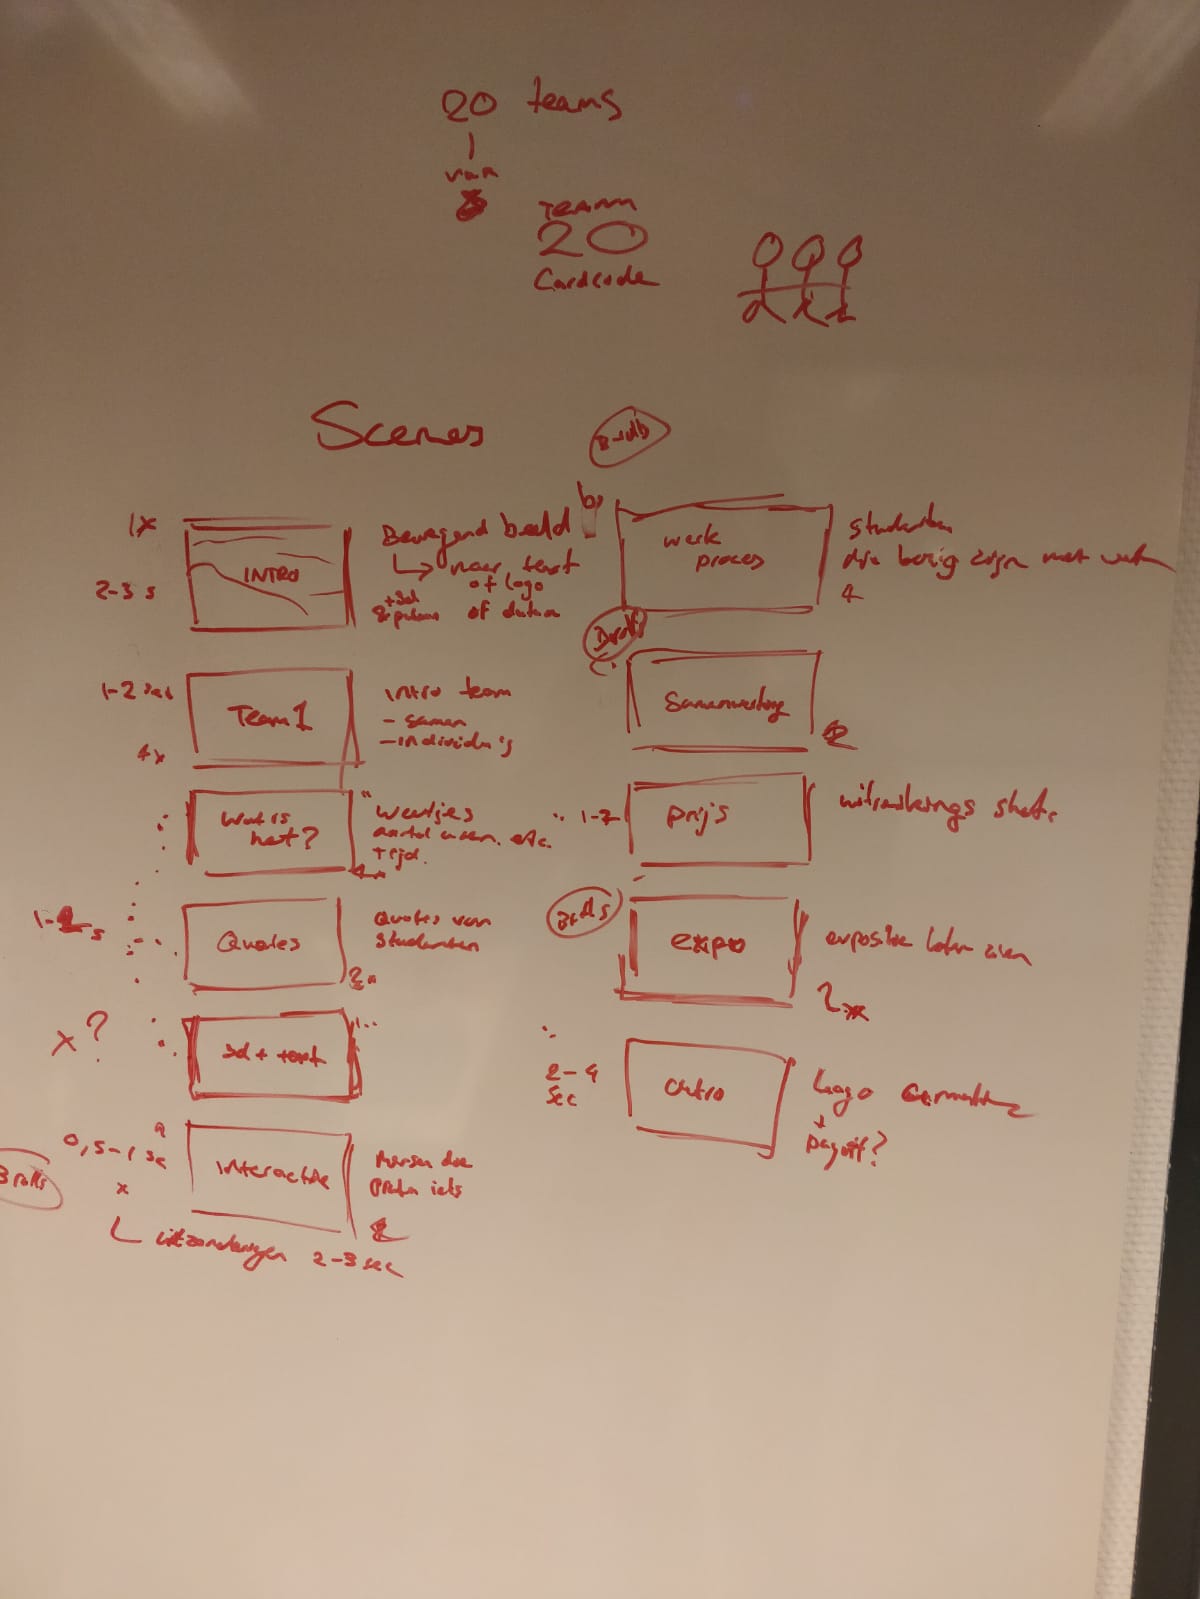 20 teams
van
TEAM
20
Cardcode
Scenes
1x
INTRO
2-3 s
Bewegend beeld
naar text
of logo
of datum
1-2 sec
Team 1
4x
intro team
- samen
- individu's
Wat is
het?
Weetjes
etc.
+ tijd.
Quotes
Quotes van
studenten
x?
3d + text
0,5-1 sec
x
Interactie
Mensen die
iets
B rolls
uitzonderingen 2-3 sec
werk
proces
studenten
die bezig zijn met werk
4
Samenwerking
1-2
prijs
uitreikings shots
expo
expositie laten zien
2x
2-4
sec
Outro
Logo
payoff?